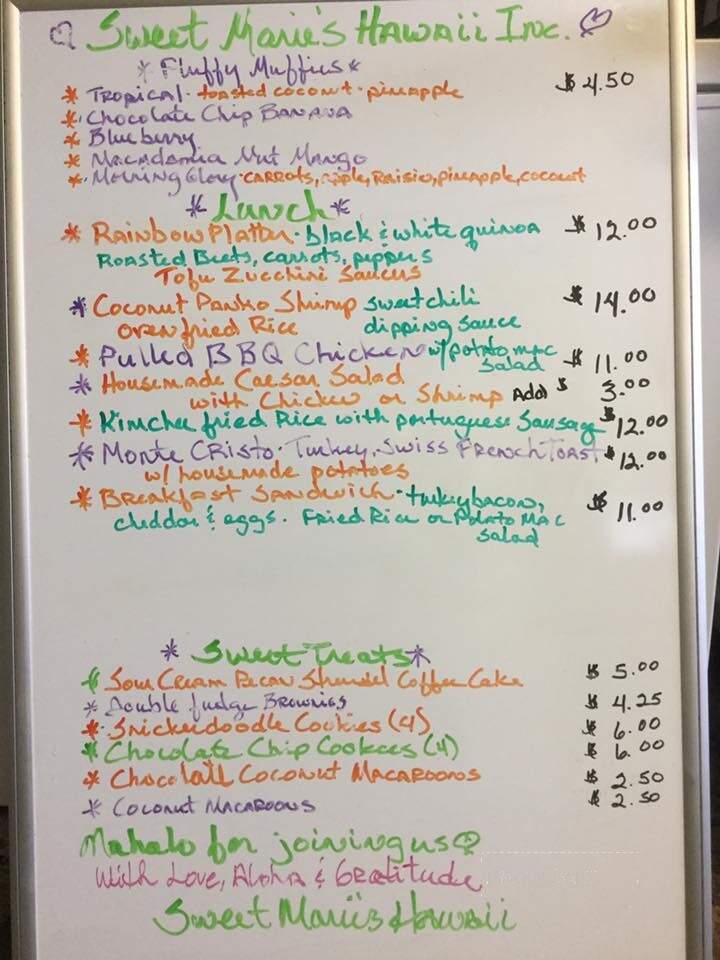 Sweet Marie's Hawaii Inc.
* Fluffy Muffins *
* Tropical · toasted coconut · pineapple $ 4.50
* Chocolate Chip Banana
* Blueberry
* Macadamia Nut Mango
* Morning Glory · carrots, apple, Raisin, pineapple, coconut
* Lunch *
* Rainbow Platter · black & white quinoa $ 12.00
Roasted Beets, carrots, peppers
Tofu Zucchini Saucus
* Coconut Panko Shrimp sweet chili $ 14.00
oven fried Rice dipping sauce
* Pulled BBQ Chicken w/ potato mac $ 11.00
salad
* Housemade Caesar Salad
with Chicken or Shrimp Add $ 3.00
* Kimchee fried Rice with portuguese Sausage $ 12.00
* Monte Cristo · Turkey, Swiss French Toast $ 12.00
w/ housemade potatoes
* Breakfast Sandwich · turkey bacon, $ 11.00
cheddar & eggs. Fried Rice or Potato Mac
salad
* Sweet Treats *
* Sour Cream Pecan Struesel Coffee Cake $ 5.00
* Double fudge Brownies $ 4.25
* Snickerdoodle Cookies (4) $ 6.00
* Chocolate Chip Cookees (4) $ 6.00
* Chocolate Coconut Macaroons $ 2.50
* Coconut Macaroons $ 2.50
Mahalo for joining us
With Love, Aloha & Gratitude
Sweet Marie's Hawaii